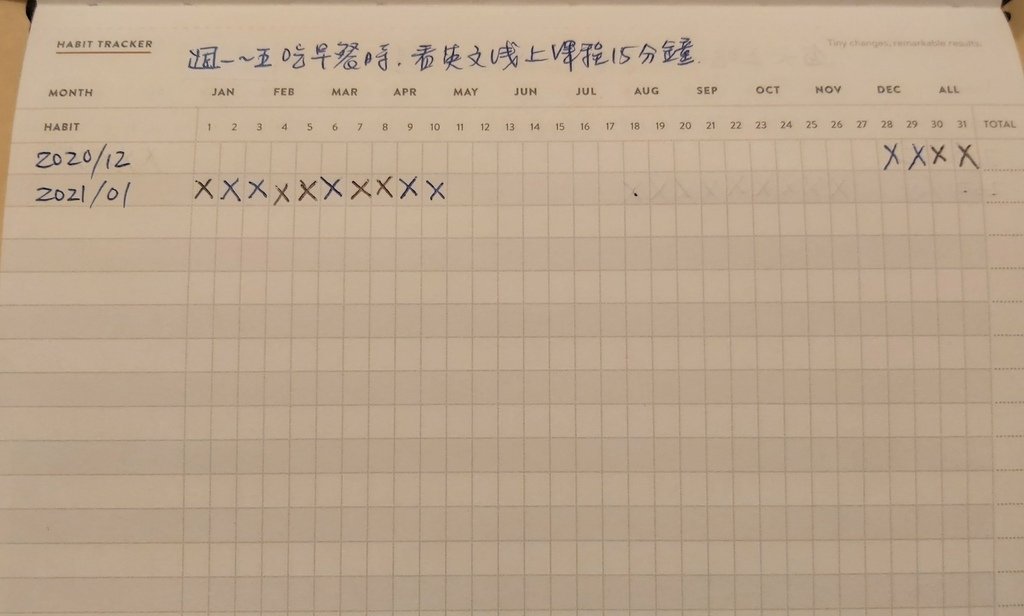 HABIT TRACKER
週一~五吃早餐時.看英文線上課程15分鐘.
Tiny changes, remarkable results.
MONTH JAN FEB MAR APR MAY JUN JUL AUG SEP OCT NOV DEC ALL
HABIT 1 2 3 4 5 6 7 8 9 10 11 12 13 14 15 16 17 18 19 20 21 22 23 24 25 26 27 28 29 30 31 TOTAL
2020/12 X X X X
2021/01 X X X X X X X X X X